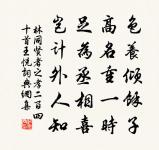 色養傾餘子
高名垂一時
足為丞相喜
豈計外人知
林同賢者之孝二百四
十首王悅詞典網集